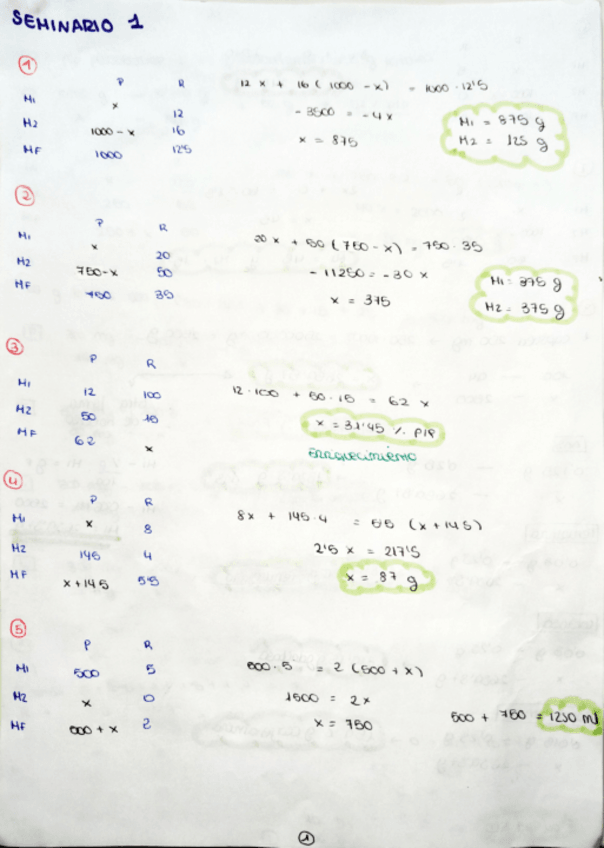 SEMINARIO 1
1
P R
M1 x 12
M2 1000-x 16
MF 1000 12'5
12x + 16(1000-x) = 1000·12'5
-3500 = -4x
x = 875
M1 = 875 g
M2 = 125 g
2
P R
M1 x 20
M2 750-x 50
MF 750 35
20x + 50(750-x) = 750·35
-11250 = -30x
x = 375
M1 = 375 g
M2 = 375 g
3
P R
M1 12 100
M2 50 15
MF 62 x
12·100 + 50·15 = 62 x
x = 31'45 % p/p
ENRIQUECIMIENTO
4
P R
M1 x 8
M2 145 4
MF x+145 5'5
8x + 145·4 = 5'5 (x+145)
2'5 x = 217'5
x = 87 g
5
P R
M1 500 5
M2 x 0
MF 500+x 2
500·5 = 2(500+x)
1500 = 2x
x = 750
500 + 750 = 1250 ml
1